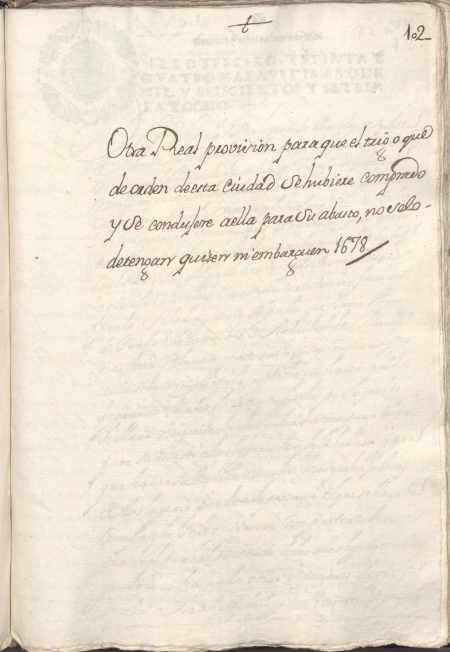 t
102
Otra Real provision para que el trigo que
de orden deesta Ciudad Sehubiere Comprado
y se condusere aella para Su abasto, no selo
detengan quiten ni embarguen 1678